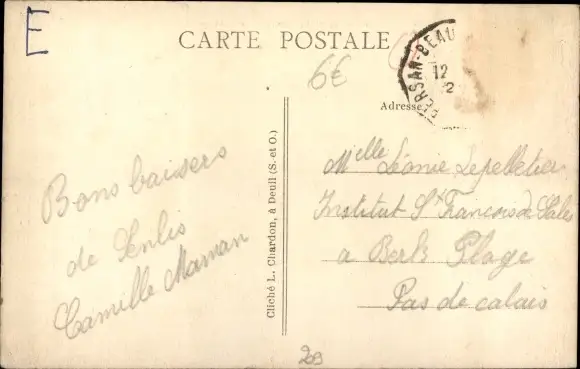 E
CARTE POSTALE
6€
PERSAN-BEAU
12
12
Adresse
Bons baisers
de Senlis
Camille Maman
Cliché L. Chardon, à Deuil (S. et O.)
Melle Léonie Lepelletier
Institut St Francois de Sales
a Berk Plage
Pas de calais
209